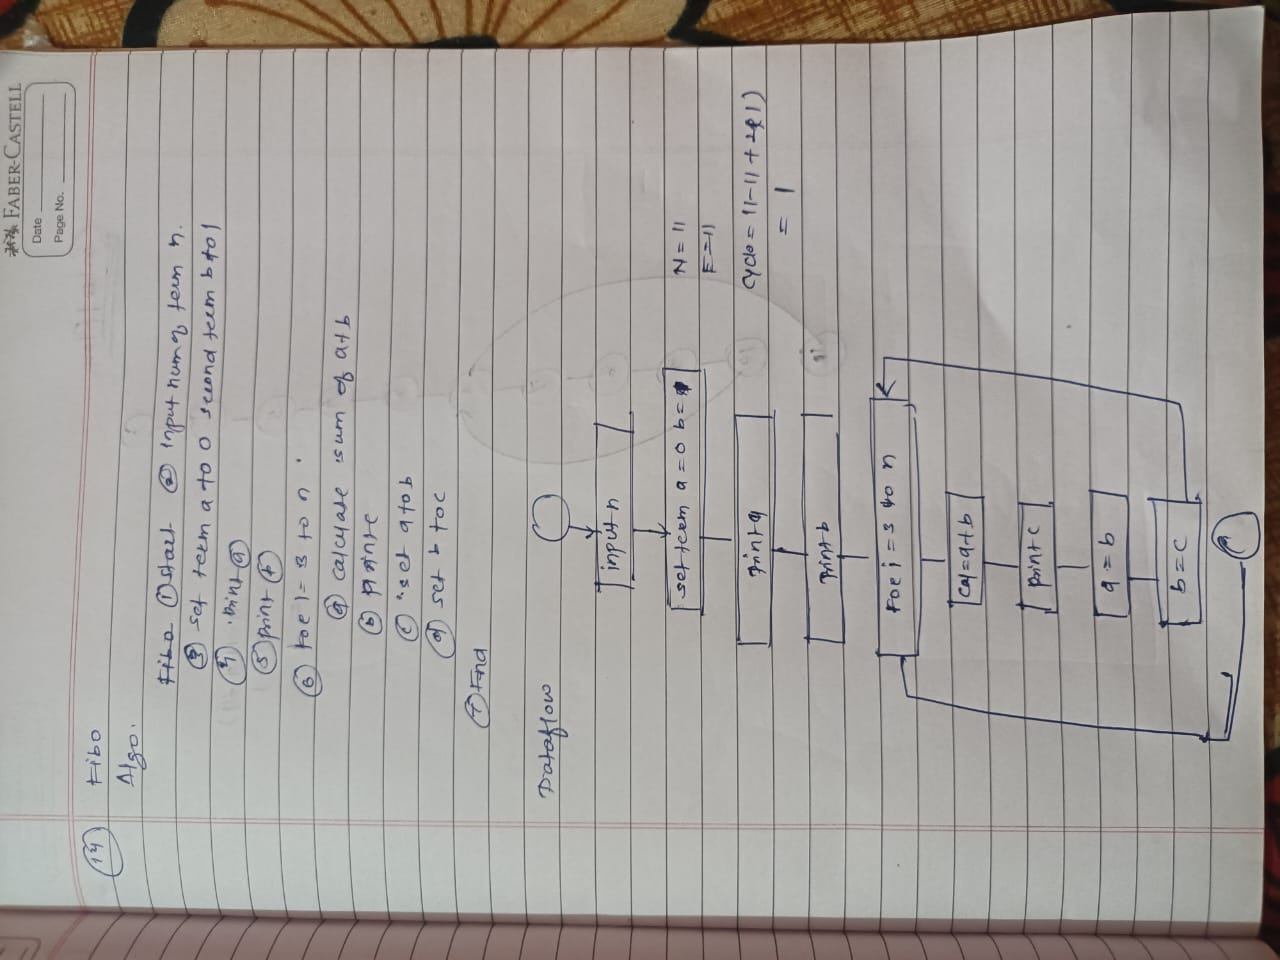 FABER-CASTELL
Date
Page No.
14 Fibo
Algo.
① Start ② input num of term n.
③ set term a to 0 second term b to 1
④ print a
⑤ print b
⑥ for i = 3 to n
ⓐ calculate sum of a+b
ⓑ print c
ⓒ set a to b
ⓓ set b to c
⑦ End
Dataflow
input n
set term a = 0 b = 1
N = 11
E = 11
print a
cyclo = 11-11 + 2(1)
= 1
print b
For i = 3 to n
cal = a+b
print c
a = b
b = c